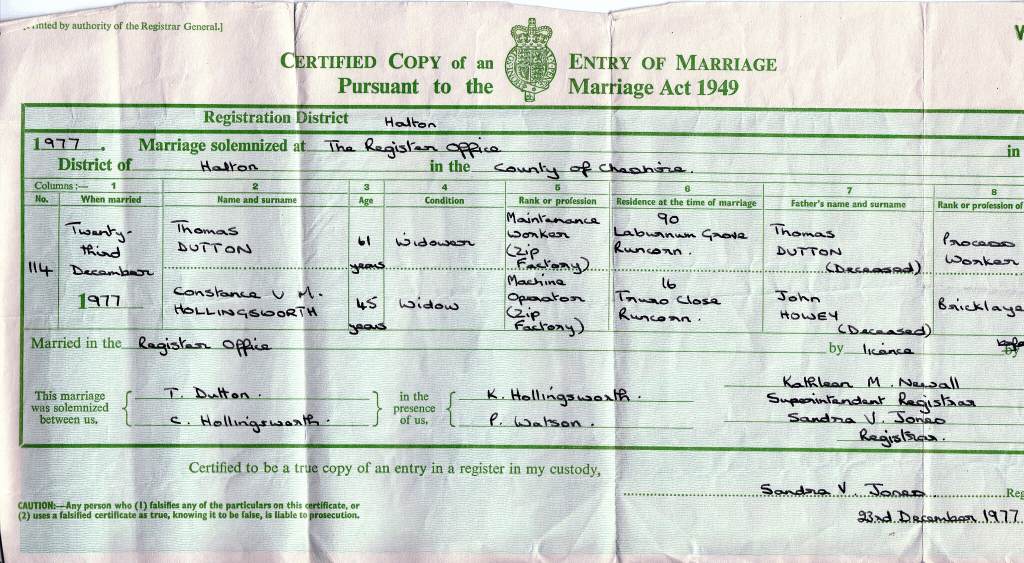 [Printed by authority of the Registrar General.]
CERTIFIED COPY of an ENTRY OF MARRIAGE
Pursuant to the Marriage Act 1949
Registration District Halton
1977. Marriage solemnized at The Register Office in
District of Halton in the County of Cheshire.
Columns:— 1 2 3 4 5 6 7 8
No. When married Name and surname Age Condition Rank or profession Residence at the time of marriage Father's name and surname Rank or profession of
114 Twenty-third December 1977
Thomas DUTTON 61 years Widower Maintenance Worker (Zip Factory) 90 Laburnum Grove Runcorn. Thomas DUTTON (Deceased) Process Worker
Constance V M. HOLLINGSWORTH 45 years Widow Machine Operator (Zip Factory) 16 Truro Close Runcorn. John HOWEY (Deceased) Bricklaye
Married in the Register Office by licence
This marriage was solemnized between us, T. Dutton. C. Hollingsworth. in the presence of us, K. Hollingsworth. P. Watson.
Kathleen M. Newall
Superintendent Registrar
Sandra V. Jones
Registrar.
Certified to be a true copy of an entry in a register in my custody,
Sandra V. Jones Reg
23rd December 1977
CAUTION:—Any person who (1) falsifies any of the particulars on this certificate, or
(2) uses a falsified certificate as true, knowing it to be false, is liable to prosecution.